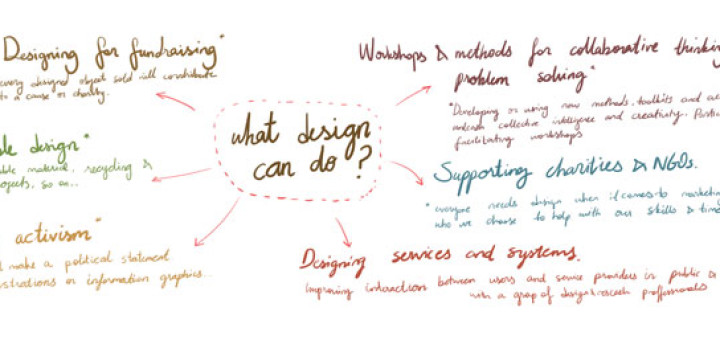 Designing for fundraising*
every designed object sold will contribute
to a cause or charity.
ble design*
able material, recycling &
ojects, so on..
activism*
d make a political statement
ustrations or information graphics...
what design
can do?
Workshops & methods for collaborative thinking
problem solving*
*Developing or using new methods, toolkits and
unleash collective intelligence and creativity.
facilitating workshops
Supporting charities & NGOs.
*everyone needs design when it comes to marketing
who we choose to help with our skills & time
Designing services and systems.
improving interaction between users and service providers in public &
with a group of design & research professionals